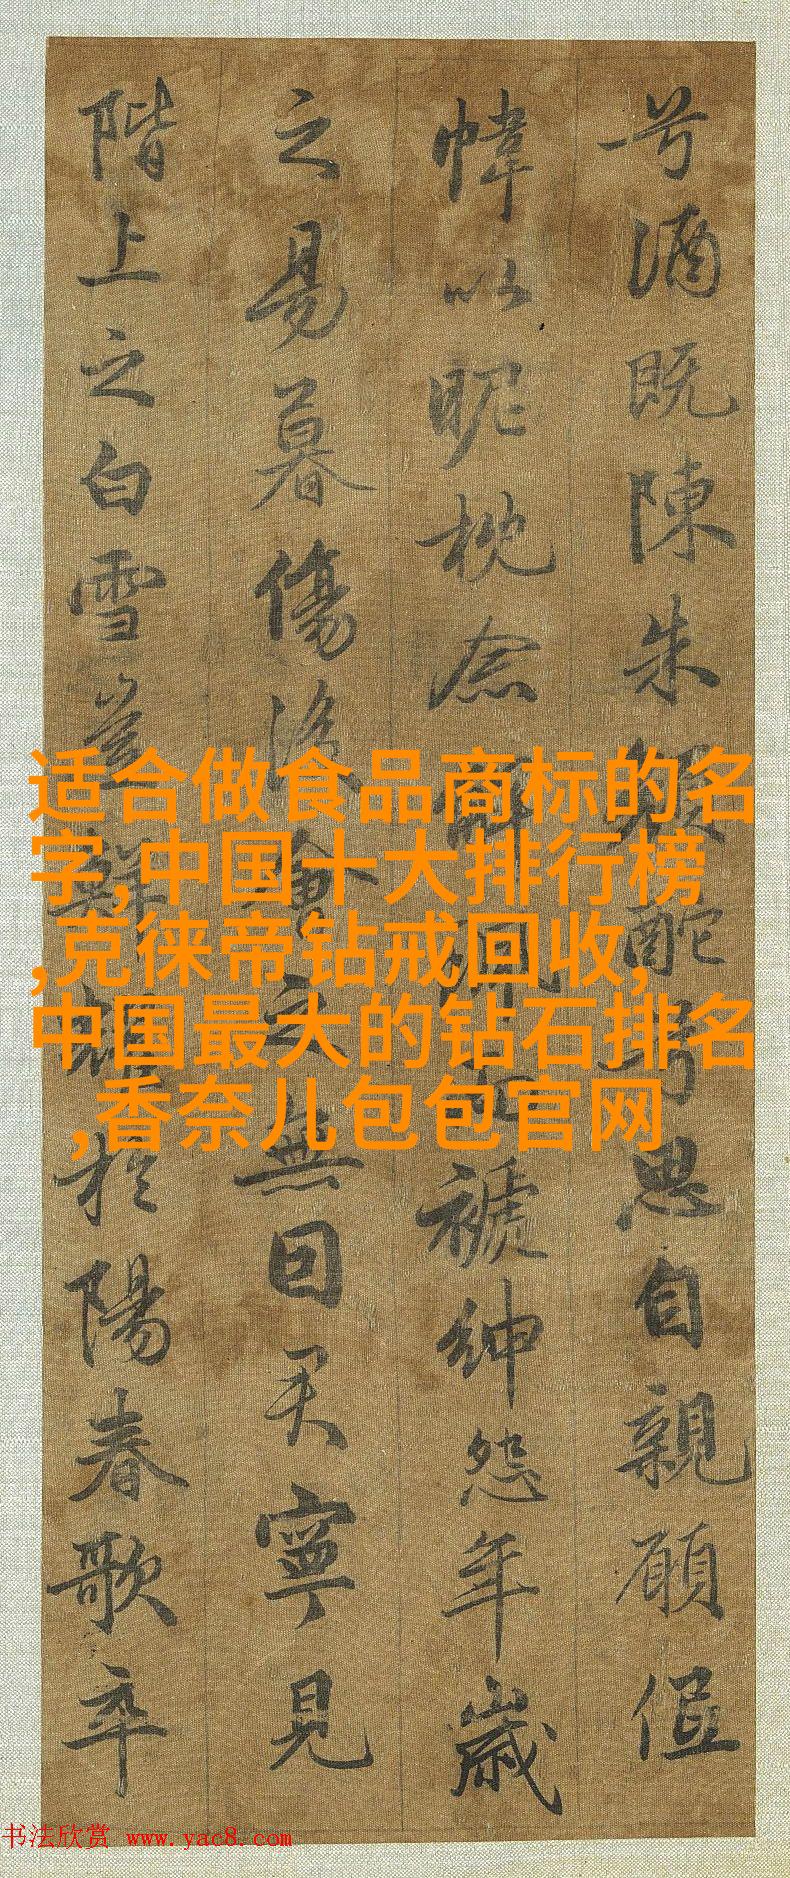 兮酒既陳朱顏酡兮思自親願低
幃以昵枕念解珮而褫紳怨年歲
之易暮傷後會之無因君寧見
階上之白雪豈鮮耀於陽春歌卒
适合做食品商标的名
字,中国十大排行榜
,克徕帝钻戒回收,
中国最大的钻石排名
,香奈儿包包官网
书法欣赏 www.yac8.com